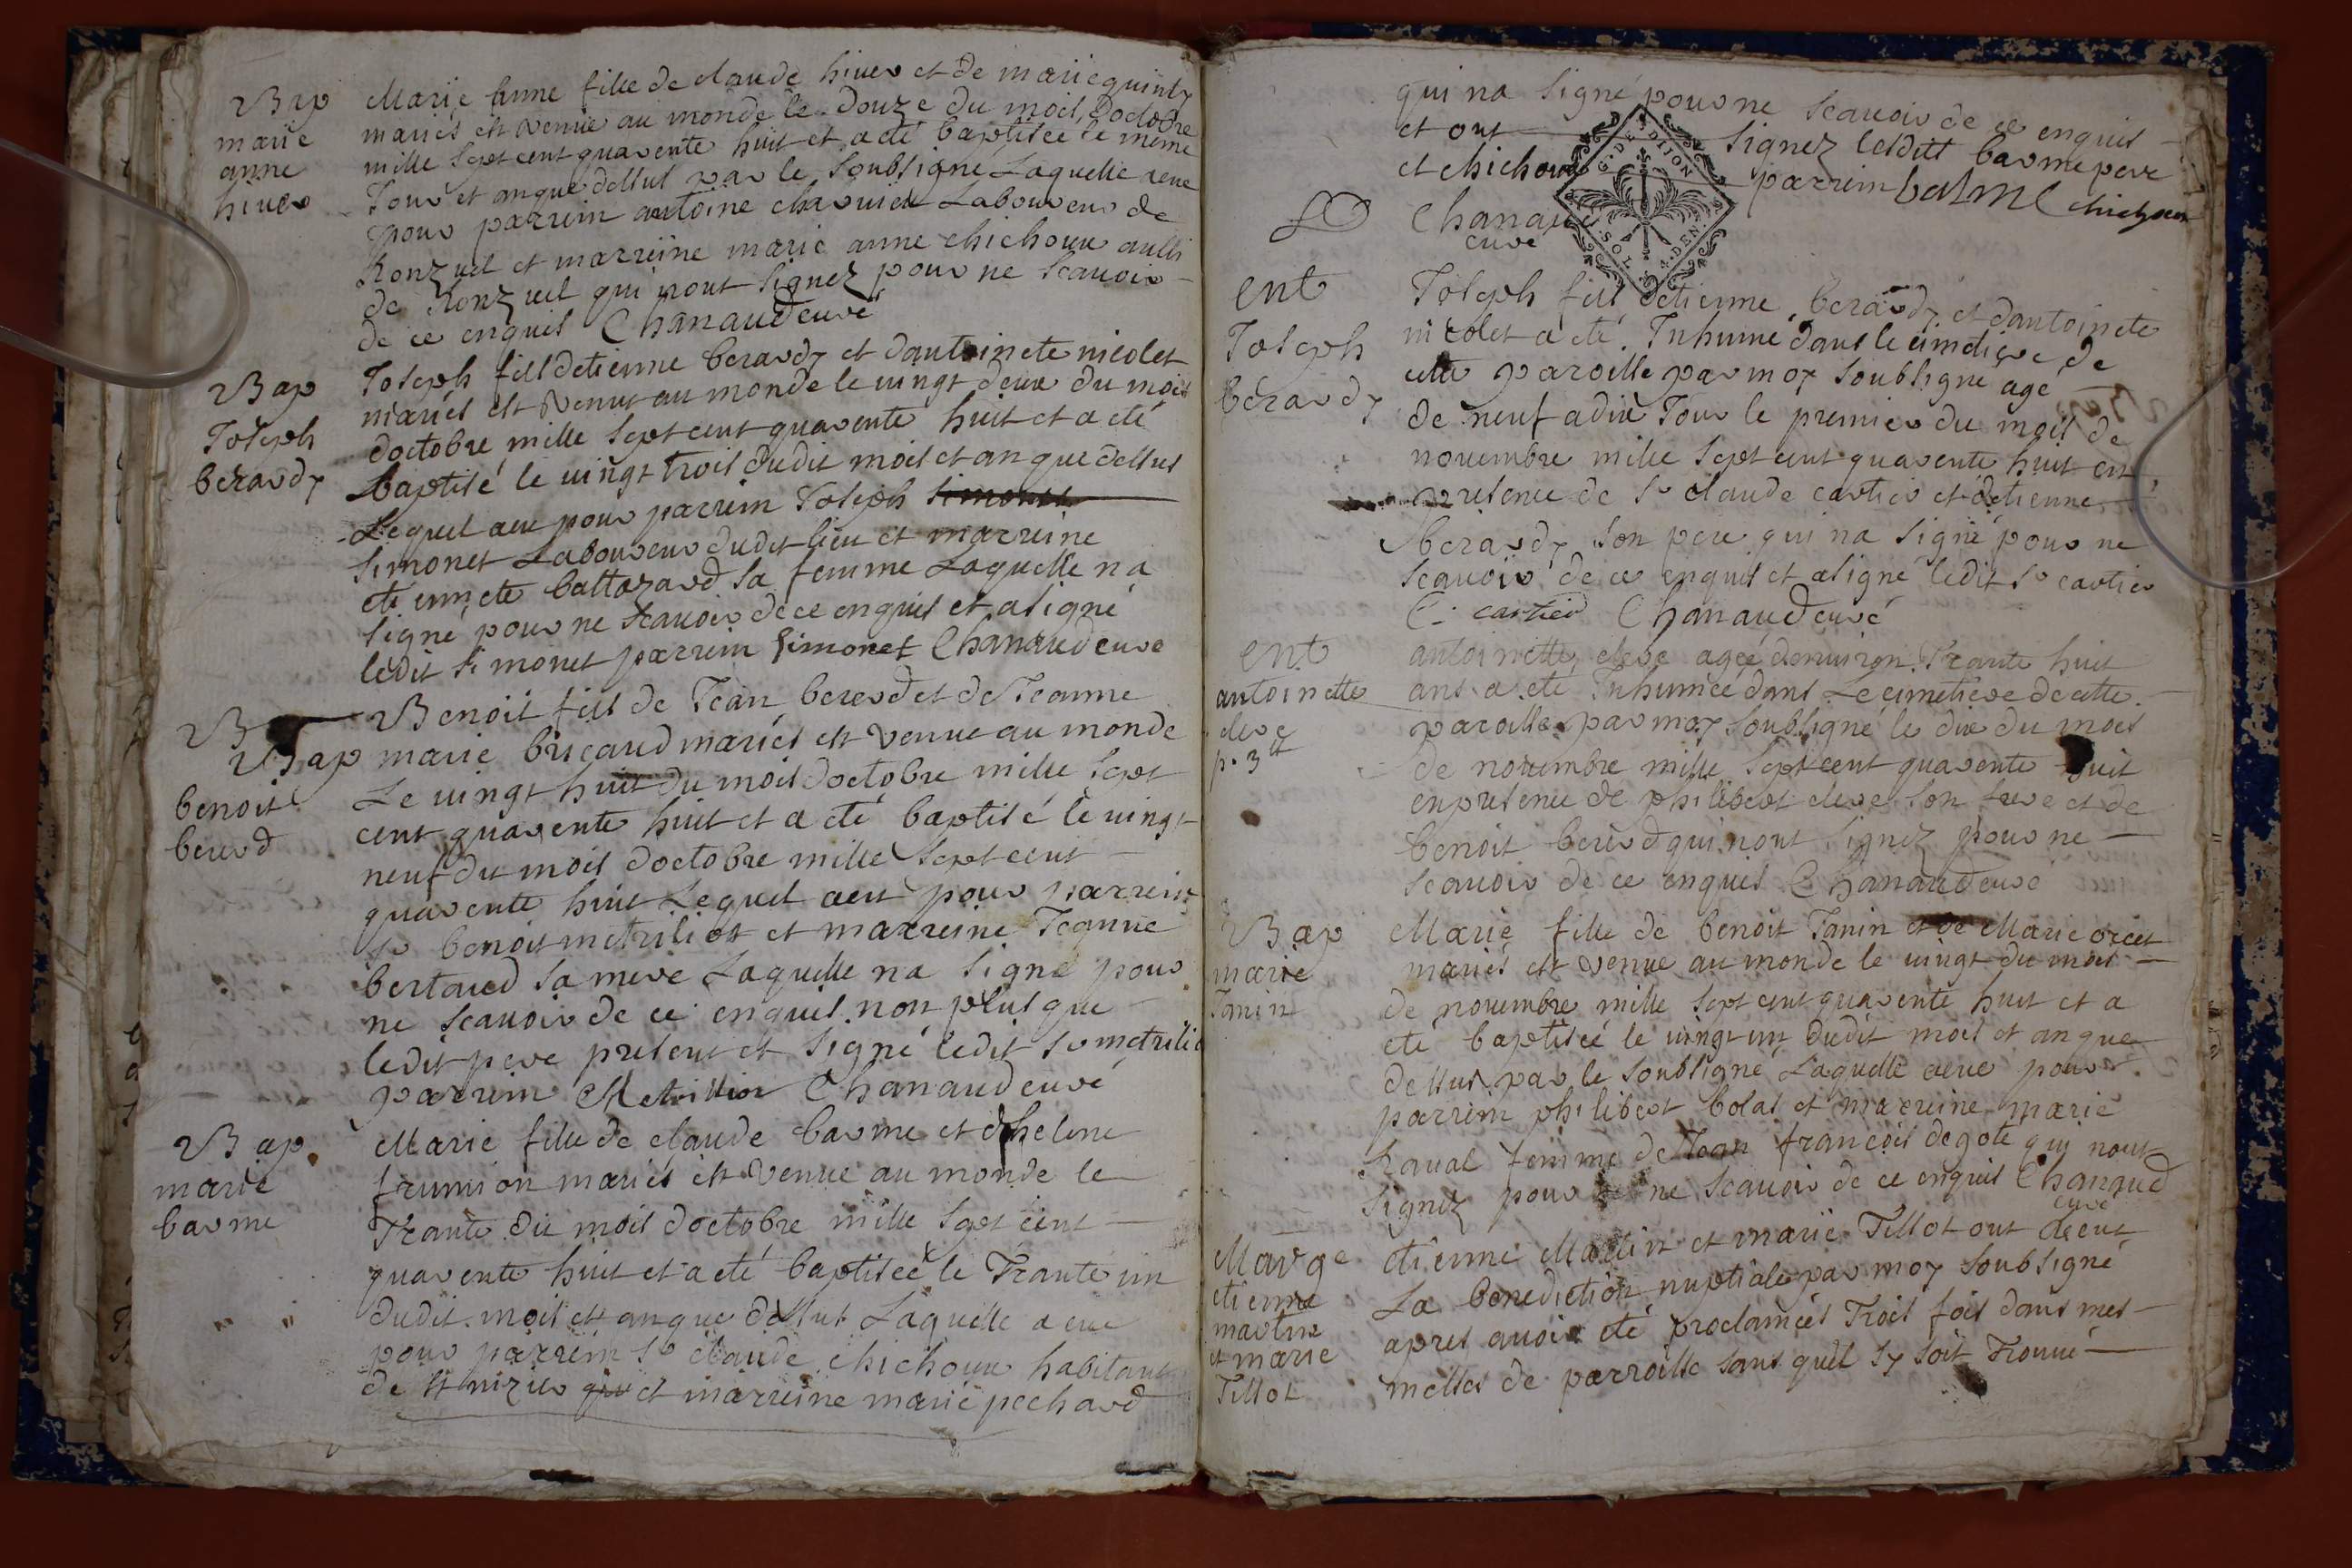 Bap
marie
anne
hiver
Marie anne fille de claude hiver et de marie quinty
mariés est venüe au monde le douze du mois doctobre
mille sept cent quarente huit et a eté baptisée le meme
Jour et an que dessus par le soubsigné Laquelle a eue
pour parrein antoine charvieu Laboureur de
Ronzuel et marreine marie anne chichoux aussi
de Ronzuel qui nont signez pour ne scauoir
de ce enquis Chanaud curé
Bap
Joseph
berardy
Joseph fils detienne berardy et dantoinete nicolet
mariés est venu au monde le uingt deux du mois
doctobre mille sept cent quarente huit et a eté
baptisé le uingt trois dudit mois et an que dessus
Lequel a eu pour parrein Joseph simonet
simonet Laboureur dudit lieu et marreine
etiennete baltazard sa femme Laquelle na
signé pour ne scauoir de ce enquis et a signé
ledit simonet parrein Simonet Chanaud curé
B
Bap
benoit
berod
Benoit fils de Jean berod et de Jeanne
marie bricaud mariés est venu au monde
Le uingt huit du mois doctobre mille sept
cent quarente huit et a eté baptisé le uingt
neuf du mois doctobre mille sept cent
quarente huit Lequel a eu pour parrein
sr benoit metrillot et marreine Jeanne
bertaud sa mere Laquelle na signé pour
ne scauoir de ce enquis non plus que
ledit pere present et signé ledit sr metrilio
parrein Metrillior Chanaud curé
Bap
marie
barme
Marie fille de claude barme et dhelene
frumion mariés est venue au monde le
Trante du mois doctobre mille sept cent
quarente huit et a eté baptisée le Trante un
dudit mois et an que dessus Laquelle a eue
pour parrein sr claude chichoux habitant
de st nizier que et marreine marie pechard
qui na signé pour ne scauoir de ce enquis
et ont signez lesdits barme pere
et chichoux parrein balme chichoux
Chanaud
curé
G. DE DIJON
SOL 4. DEN.
ent
Joseph
berardy
Joseph fils detienne berardy et dantoinete
nicolet a eté Inhumé dans le cimetiere de
cette paroisse par moy soubsigné agé
de neuf a dix Jour le premier du mois de
nouembre mille sept cent quarente huit en
presence de sr claude cartier et detienne
berardy son pere qui na signé pour ne
scauoir de ce enquis et a signé ledit sr cartier
C. cartier Chanaud curé
ent
antoinette
clere
p. 3tt
antoinette clere agée denuiron Trante huit
ans a eté Inhumée dans Le cimetiere de cette
paroisse par moy soubsigné le dix du mois
de nouembre mille sept cent quarente huit
en presence de philibert clere son frere et de
benoit berod qui nont signez pour ne
scauoir de ce enquis Chanaud curé
Bap
marie
Janin
Marie fille de benoit Janin et de Marie
mariés est venue au monde le uingt du mois
de nouembre mille sept cent quarente huit et a
eté baptisée le uingt un dudit mois et an que
dessus par le soubsigné Laquelle a eue pour
parrein philibert bolas et marreine marie
Raual femme de Jean francois degote qui nont
signez pour ne scauoir de ce enquis Chanaud
curé
Marge
etienne
martin
et marie
Tillot
etienne Martin et marie Tillot ont receut
La benediction nuptiale par moy soubsigné
apres auoir eté proclamées Trois fois dans mes
messes de parroisse sans quil sy soit Trouué